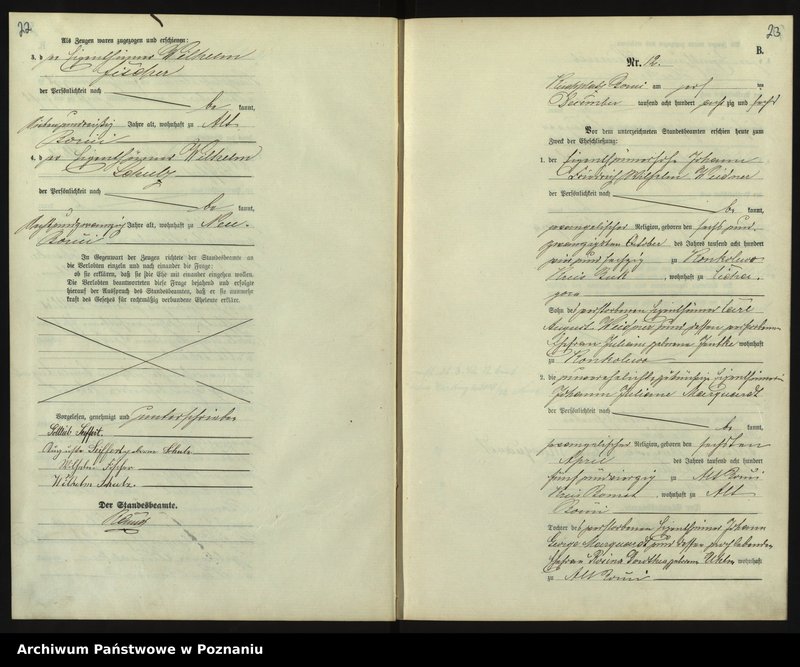 22
Als Zeugen waren zugezogen und erschienen:
3. der Eigenthümer Wilhelm
Fischer
der Persönlichkeit nach
be kannt,
Jahre alt, wohnhaft zu Alt
Borui
4. der Eigenthümer Wilhelm
Schulz
der Persönlichkeit nach
be kannt,
Jahre alt, wohnhaft zu Neu-
Borui
In Gegenwart der Zeugen richtete der Standesbeamte an
die Verlobten einzeln und nach einander die Frage:
ob sie erklären, daß sie die Ehe mit einander eingehen wollen.
Die Verlobten beantworteten diese Frage bejahend und erfolgte
hierauf der Ausspruch des Standesbeamten, daß er sie nunmehr
kraft des Gesetzes für rechtmäßig verbundene Eheleute erkläre.
Vorgelesen, genehmigt und unterschrieben
Gottlieb Seiffert.
Auguste Seiffert geborene Schulz
Wilhelm Fischer
Wilhelm Schulz.
Der Standesbeamte.
23
B.
Nr. 12.
Kirchplatz Borui am
December tausend acht hundert sechzig und sechs
Vor dem unterzeichneten Standesbeamten erschien heute zum
Zweck der Eheschließung:
1. der Eigenthümersohn Johann
Heinrich Wilhelm Weidner
der Persönlichkeit nach
be kannt,
evangelischer Religion, geboren den sechs und
zwanzigsten October des Jahres tausend acht hundert
vier und sechzig zu Konkolewo
Kreis Buk, wohnhaft zu Cicha-
gora
Sohn des verstorbenen Eigenthümer Carl
August Weidner und dessen verstorbenen
Ehefrau Juliane geborene Jentke wohnhaft
zu Konkolewo
2. die
Johanne Juliane Marquardt
der Persönlichkeit nach
be kannt,
evangelischer Religion, geboren den sechsten
April des Jahres tausend acht hundert
fünf und vierzig zu Alt Borui
Kreis Bomst, wohnhaft zu Alt
Borui
Tochter des verstorbenen Eigenthümer Johann
George Marquardt und dessen
Ehefrau Rosina Dorothea geborene wohnhaft
zu Alt Borui
Archiwum Państwowe w Poznaniu